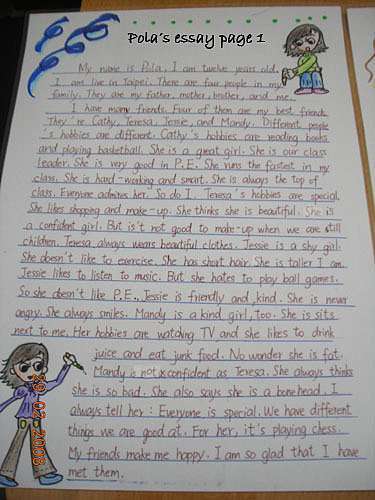 Pola's essay page 1
My name is Pola. I am twelve years old.
I am live in Taipei. There are four people in my
family. They are my father, mother, brother, and me.
I have many friends. Four of them are my best friends.
They're Cathy, Teresa, Jessie, and Mandy. Different people
's hobbies are different. Cathy's hobbies are reading books
and playing basketball. She is a great girl. She is our class
leader. She is very good in P.E. She runs the fastest in my
class. She is hard-working and smart. She is always the top of
class. Everyone admires her. So do I. Teresa's hobbies are special.
She likes shopping and make-up. She thinks she is beautiful. She is
a confident girl. But is't not good to make-up when we are still
children. Teresa always wears beautiful clothes. Jessie is a shy girl.
She doesn't like to exercise. She has short hair. She is taller I am.
Jessie likes to listen to music. But she hates to play ball games.
So she doesn't like P.E. Jessie is friendly and kind. She is never
angry. She always smiles. Mandy is a kind girl, too. She is sits
next to me. Her hobbies are watching TV and she likes to drink
juice and eat junk food. No wonder she is fat.
Mandy is not confident as Teresa. She always thinks
she is so bad. She also says she is a bonehead. I
always tell her: Everyone is special. We have different
things we are good at. For her, it's playing chess.
My friends make me happy. I am so glad that I have
met them.
29 02 2008